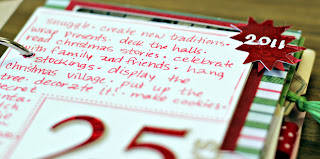 snuggle. create new traditions.
wrap presents. deck the halls.
read christmas stories. celebrate
with family and friends. hang
stockings. display the
christmas village. put up the
tree. decorate it! make cookies.
secret
santa
2011
25